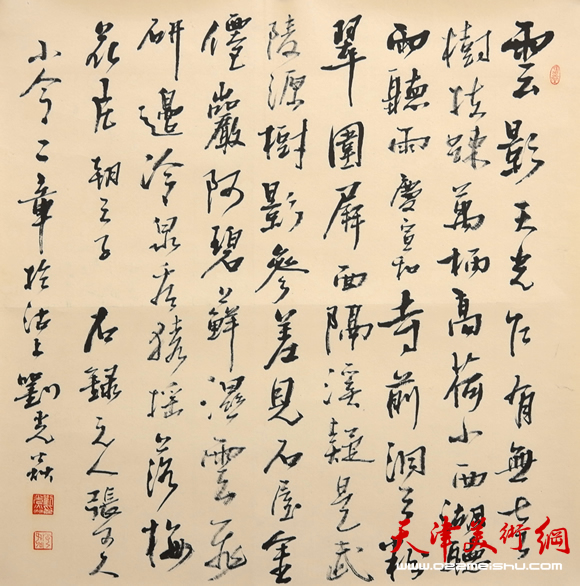 雲影天光乍有無老
樹扶疎萬柄高荷小西湖聽
雨聽雨慶宣和寺前洞天粉
翠圍屏面隔溪疑是武
陵源樹影參差見石屋金
僊巖阿碧蘚濕雲飛
研邊冷泉看猿搖落梅
花片朝天子 右錄元人張可久
小令二章於沽上劉光焱
天津美術網
www.oeameishu.com